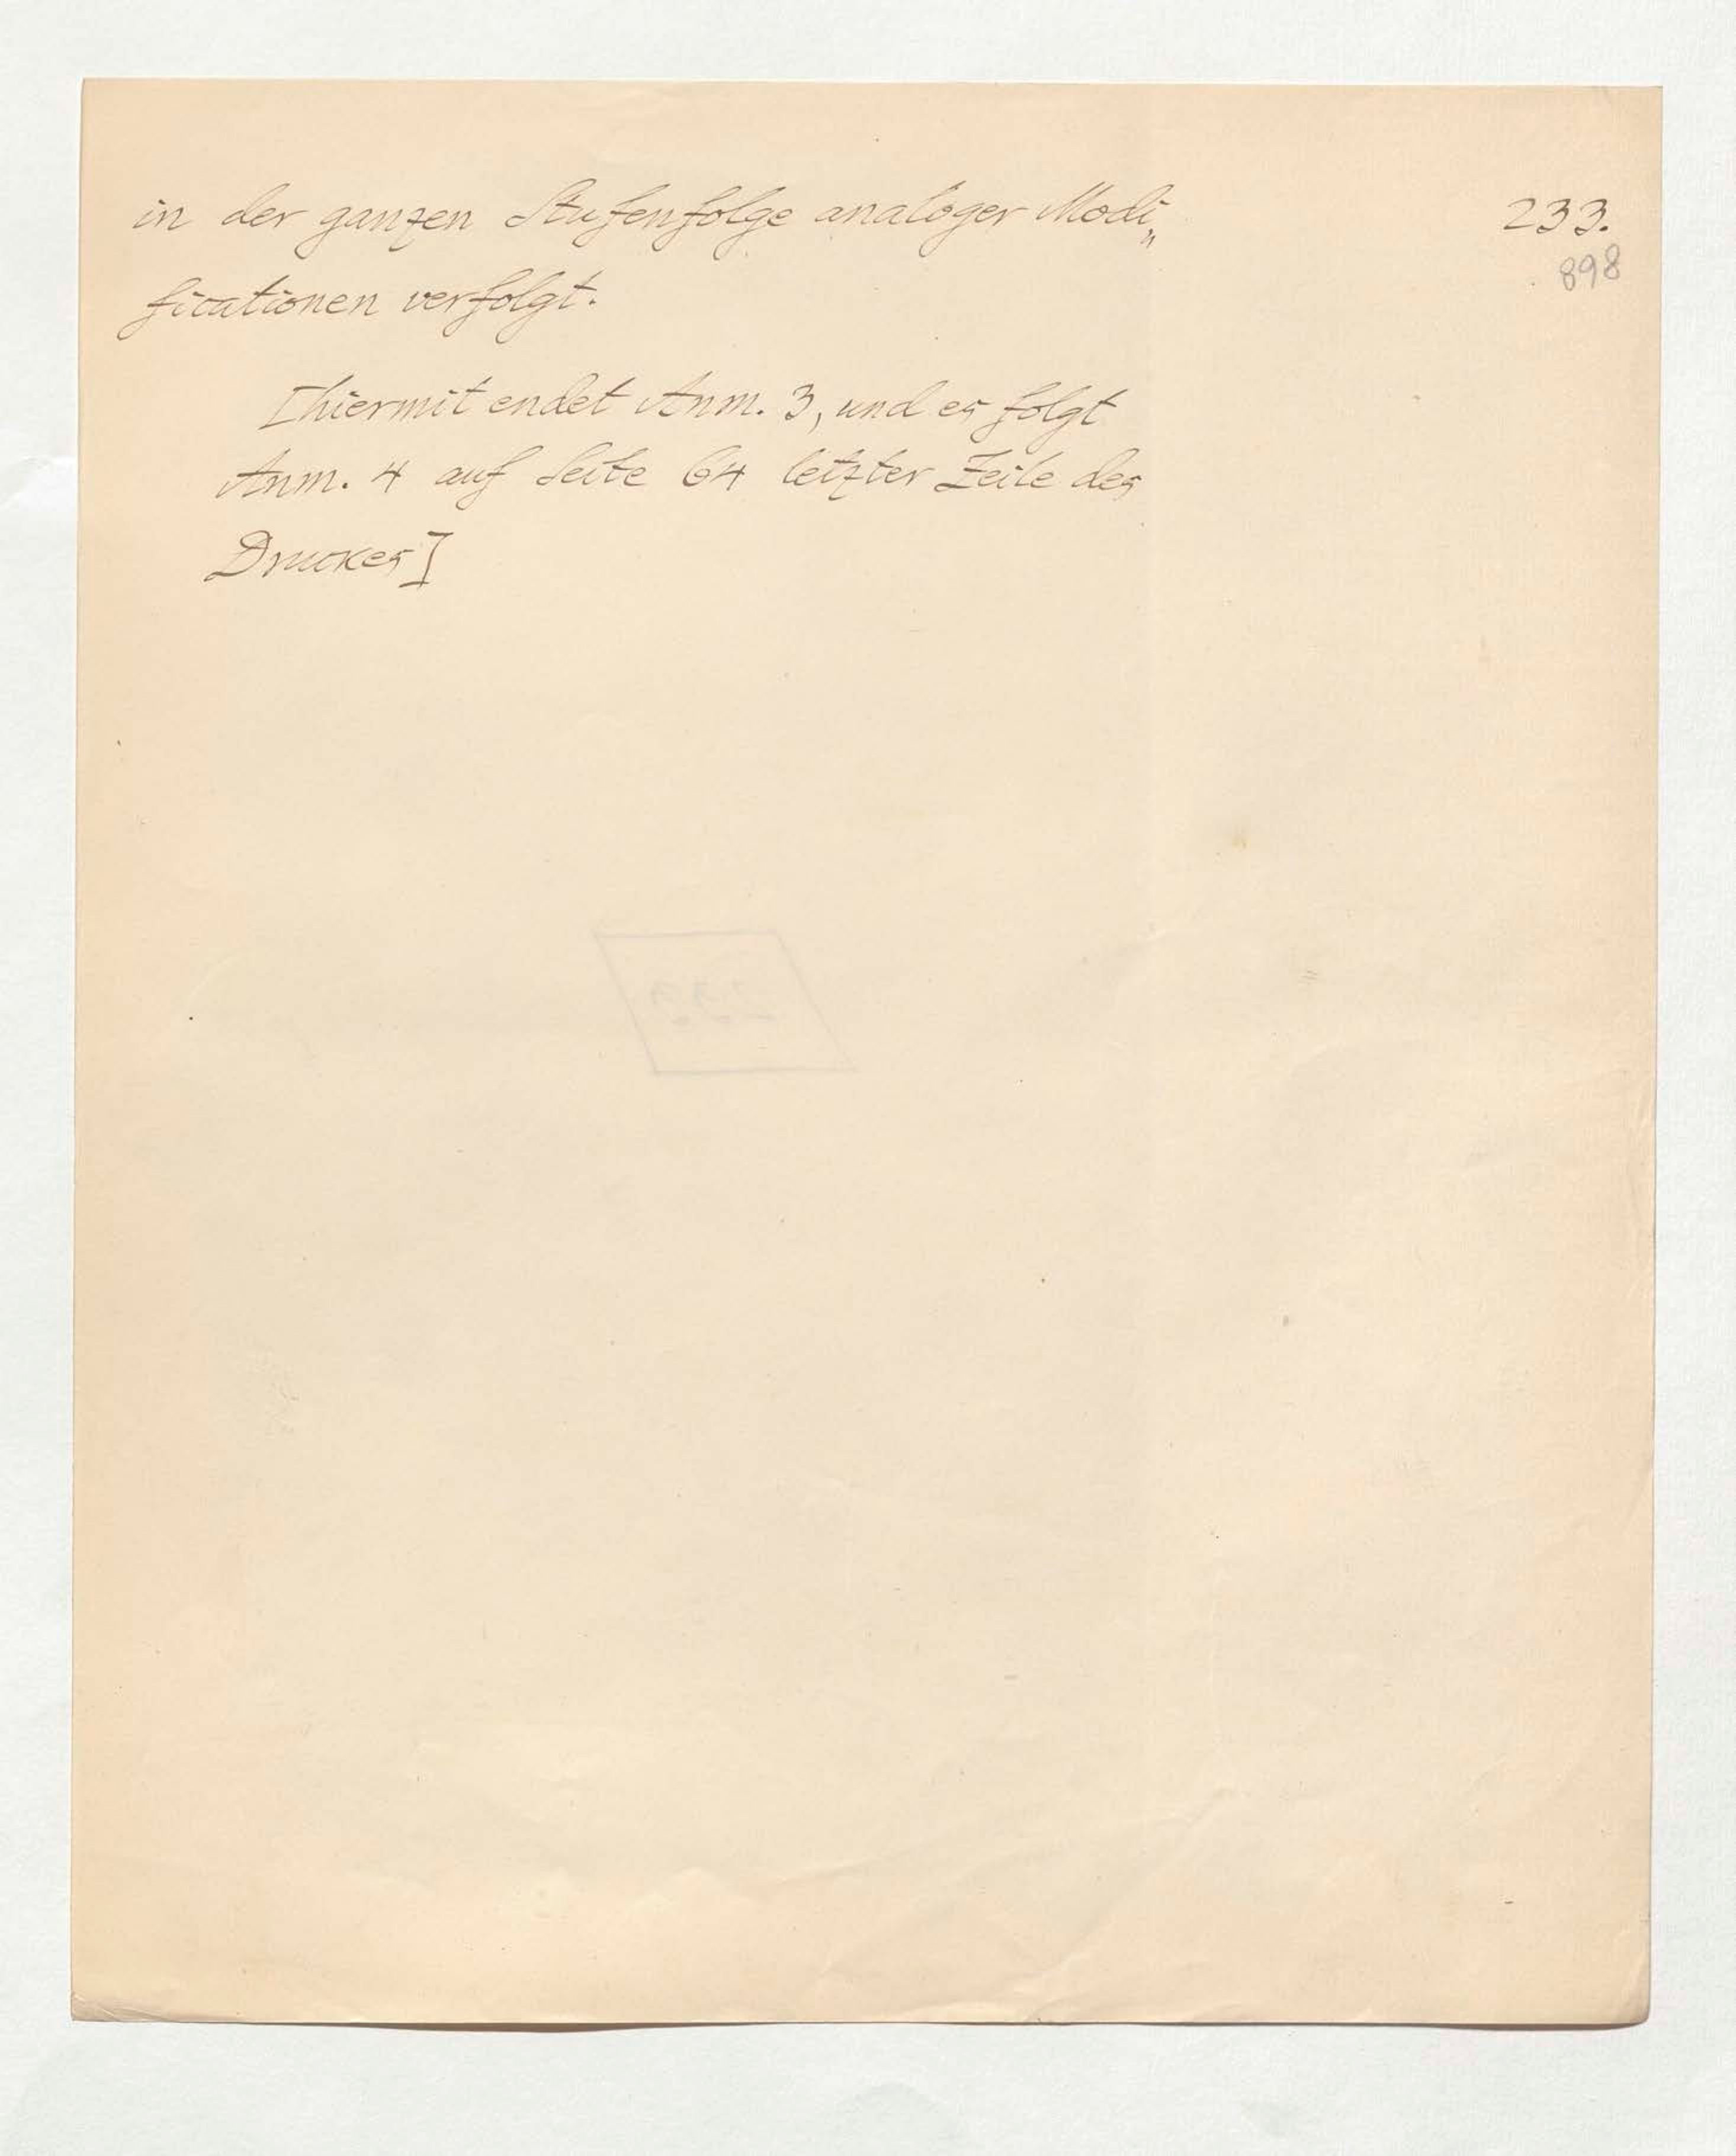 in der ganzen Stufenfolge analoger Modi„
233.
898
ficationen verfolgt.
[hiermit endet Anm. 3, und es folgt
Anm. 4 auf Seite 64 letzter Zeile des
Druckes]